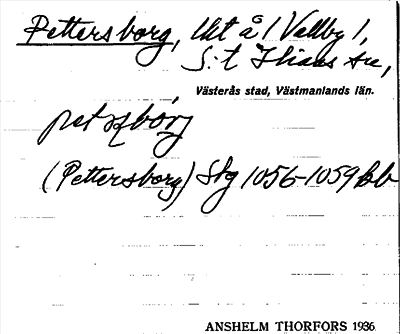 Pettersborg, lht å 1 Vallby 1,
S:t Ilians sn,
Västerås stad, Västmanlands län.
(Pettersborg) Skg 1056-1059 bb
ANSHELM THORFORS 1936